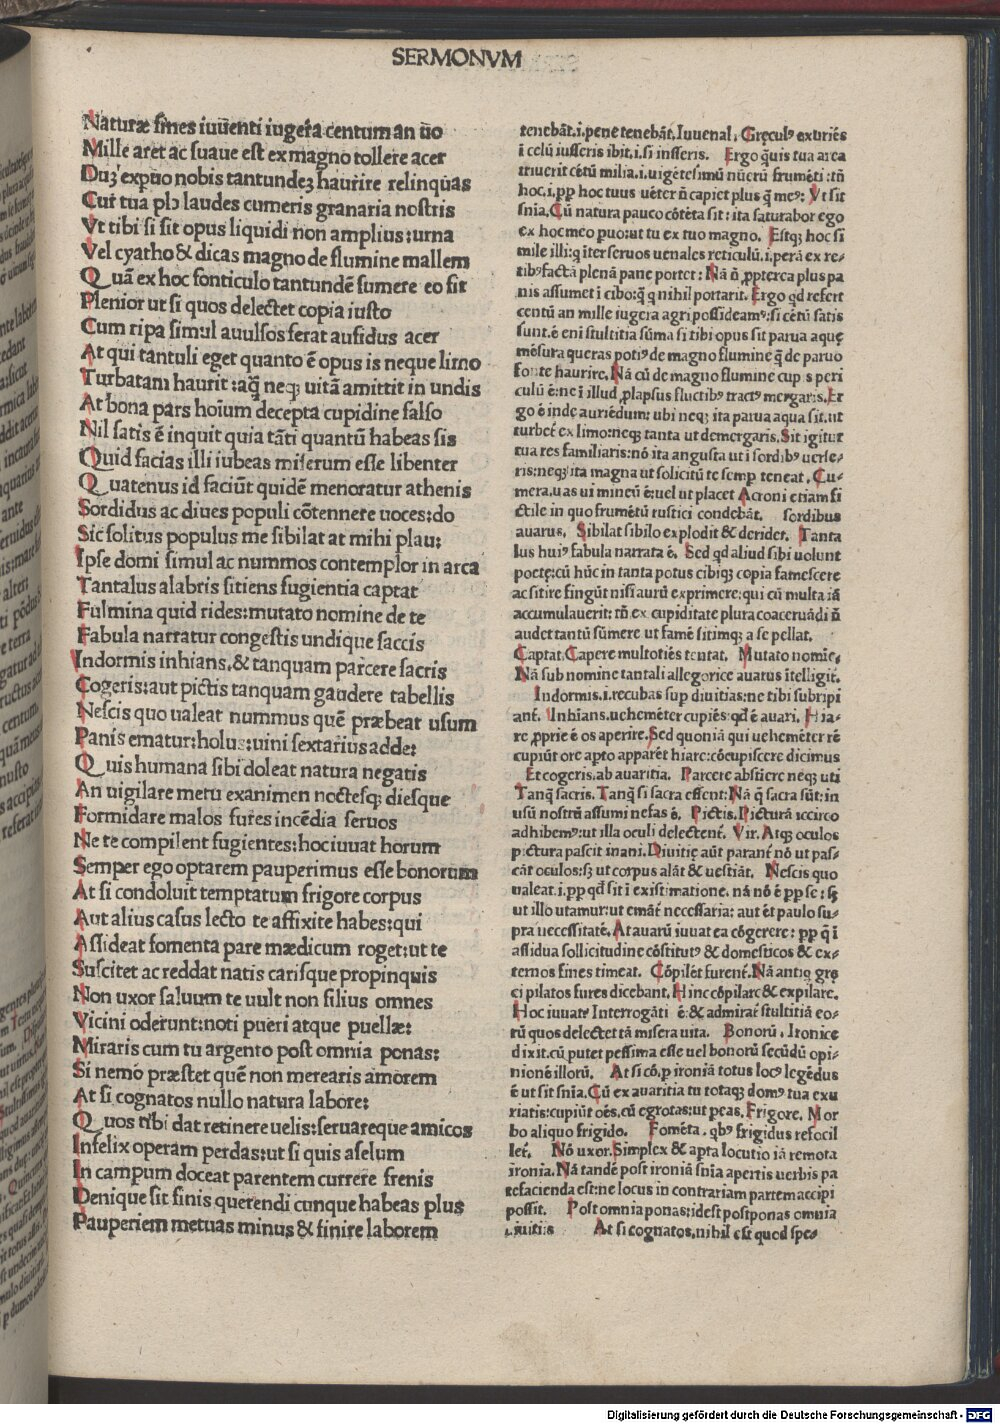 SERMONVM
Naturæ fines iuuenti iugera centum an ũo
Mille aret ac suaue est ex magno tollere acer
Duꝫ ex puo nobis tantundeꝫ haurire relinquas
Cur tua plꝰ laudes cumeris granaria nostris
Vt tibi si sit opus liquidi non amplius:urna
Vel cyatho & dicas magno de flumine mallem
Quã ex hoc fonticulo tantundẽ sumere eo fit
Plenior ut si quos delectet copia iusto
Cum ripa simul auulsos ferat aufidus acer
At qui tantuli eget quanto ẽ opus is neque limo
Turbatam haurit:aq̃ neqꝫ uitã amittit in undis
At bona pars hoĩum decepta cupidine falso
Nil satis ẽ inquit quia tãti quantũ habeas sis
Quid facias illi iubeas miserum esse libenter
Quatenus id faciũt quidẽ memoratur athenis
Sordidus ac diues populi cõtennere uoces:do
Sic solitus populus me sibilat at mihi plau:
Ipse domi simul ac nummos contemplor in arca
Tantalus alabris sitiens fugientia captat
Fulmina quid rides:mutato nomine de te
Fabula narratur congestis undique saccis
Indormis inhians.& tanquam parcere sacris
Cogeris:aut pictis tanquam gaudere tabellis
Nescis quo ualeat nummus quẽ præbeat usum
Panis ematur:holus:uini sextarius adde:
Quis humana sibi doleat natura negatis
An uigilare metu exanimen noctesqꝫ diesque
Formidare malos fures incẽdia seruos
Ne te compilent fugientes:hoc iuuat horum
Semper ego optarem pauperimus esse bonorum
At si condoluit temptatum frigore corpus
Aut alius casus lecto te affixite habes:qui
Assideat fomenta pare mædicum roget:ut te
Suscitet ac reddat natis carisque propinquis
Non uxor saluum te uult non filius omnes
Vicini oderunt:noti pueri atque puellæ:
Miraris cum tu argento post omnia ponas:
Si nemo præstet quẽ non merearis amorem
At si cognatos nullo natura labore:
Quos tibi dat retinere uelis:seruareque amicos
Infelix operam perdas:ut si quis aselum
In campum doceat parentem currere frenis
Denique sit finis querendi cunque habeas plus
Pauperiem metuas minus & finire laborem
tenebãt.i.pene tenebãt.Iuuenal. Gręculꝰ exuriẽs
ĩ celũ iusseris ibit.i.si insseris. Ergo q̃uis tua area
triuerit cẽtũ milia.i.uigẽtesimũ nũerũ frumẽti:tñ
hoc.i.ꝓp hoc tuus uẽter ñ capiet plus q̃ meꝰ: Vt sit
snia.Cũ natura pauco cõtẽta sit:ita saturabor ego
ex hoc meo puo:ut tu ex tuo magno. Estqꝫ hoc si
mile illi:q iter seruos uenales reticulũ.i.perã ex re⸗
tibꝰ factã plenã pane portet: Nã ñ ꝓpterea plus pa
nis assumet ĩ cibo:q̃ q nihil portarit. Ergo qd refert
centũ an mille iugera agri possideamꝰ:si cẽtũ satis
sunt.ẽ eni stultitia sũma si tibi opus sit parua aquę
mẽsura queras potiꝰ de magno flumine q̃ de paruo
fonte haurire.Nã cũ de magno flumine cupis peri
culũ ẽ:ne ĩ illud ꝓlapsus fluctibꝰ tractꝰ mergaris.Er
go ẽ inde auriẽdum:ubi neqꝫ ita parua aqua sit.ut
turbet́ ex limo:neqꝫ tanta ut demergaris.Sit igitur
tua res familiaris:nõ ita angusta ut i sordibꝰ uerse⸗
ris:neqꝫ ita magna ut solicitũ te semp teneat. Cu⸗
mera.uas uimineũ ẽ:uel ut placet Acroni etiam fi
ctile in quo frumẽtũ rustici condebãt. sordibus
auarus. Sibilat sibilo explodit & deridet. Tanta
lus huiꝰ fabula narrata ẽ. Sed qd aliud sibi uolunt
poetę:cũ hũc in tanta potus cibiqꝫ copia famescere
ac sitire fingũt nisi aurũ exprimere:qui cũ multa iã
accumulauerit:tñ ex cupiditate plura coaceruãdi ñ
audet tantũ sũmere ut famẽ sitimqꝫ a se pellat.
Captat.Capere multotiẽs tentat. Mutato nomie.
Nã sub nomine tantali allegorice auarus ĩtelligit́.
Indormis.i.recubas sup diuitias:ne tibi subripi
ant́. Inhians.uehemẽter cupiẽs:qd ẽ auari. Hia⸗
re ꝓprie ẽ os aperire.Sed quoniã qui uehemẽter rẽ
cupiũt ore apto apparet hiare:cõcupiscere dicimus
Et cogeris.ab auaritia. Parcere abstiere neqꝫ uti
Tanq̃ sacris.Tanq̃ si sacra essent:Nã q̃ sacra sũt:in
usũ nostrũ assumi nefas ẽ. Pictis.Picturã iccirco
adhibemꝰ:ut illa oculi delectent́. Vir.Atqꝫ oculos
pictura pascit inani.Diuitię aũt parant́ nõ ut pas⸗
cãt oculos:sꝫ ut corpus alãt & uestiãt. Nescis quo
ualeat.i.ꝓp qd sit ĩ existimatione. nã nõ ẽ ꝓp se:sꝫ
ut illo utamur:ut emãt́ necessaria:aut et́ paulo su⸗
pra necessitatẽ.At auarũ iuuat ea cõgerere: ꝓp q̃ ĩ
assidua sollicitudine cõstitutꝰ & domesticos & ex⸗
ternos fines timeat. Cõpilẽt furent́.Nã antiq grę
ci pilatos fures dicebant.Hinc cõpilare & expilare.
Hoc iuuat: Interrogãti ẽ:& admirat́ stultitiã eo⸗
rũ quos delectet tã misera uita. Bonorũ. Ironice
dixit.cũ putet pessima esse uel bonorũ secũdũ opi⸗
nionẽ illorũ. At si cõ.p ironiã totus locꝰ legẽdus
ẽ ut sit snia.Cũ ex auaritia tu totaqꝫ domꝰ tua exu
riatis:cupiũt oẽs.cũ egrotas:ut peas.Frigore.Mor
bo aliquo frigido. Fomẽta.qbꝰ frigidus refocil
let́. Nõ uxor.Simplex & apta locutio iã remota
ironia.Nã tandẽ post ironiã snia apertis uerbis pa
tefacienda est:ne locus in contrariam partem accipi
possit. Post omnia ponas:idest postponas omnia
At si cognatos.nihil est quod spe⸗